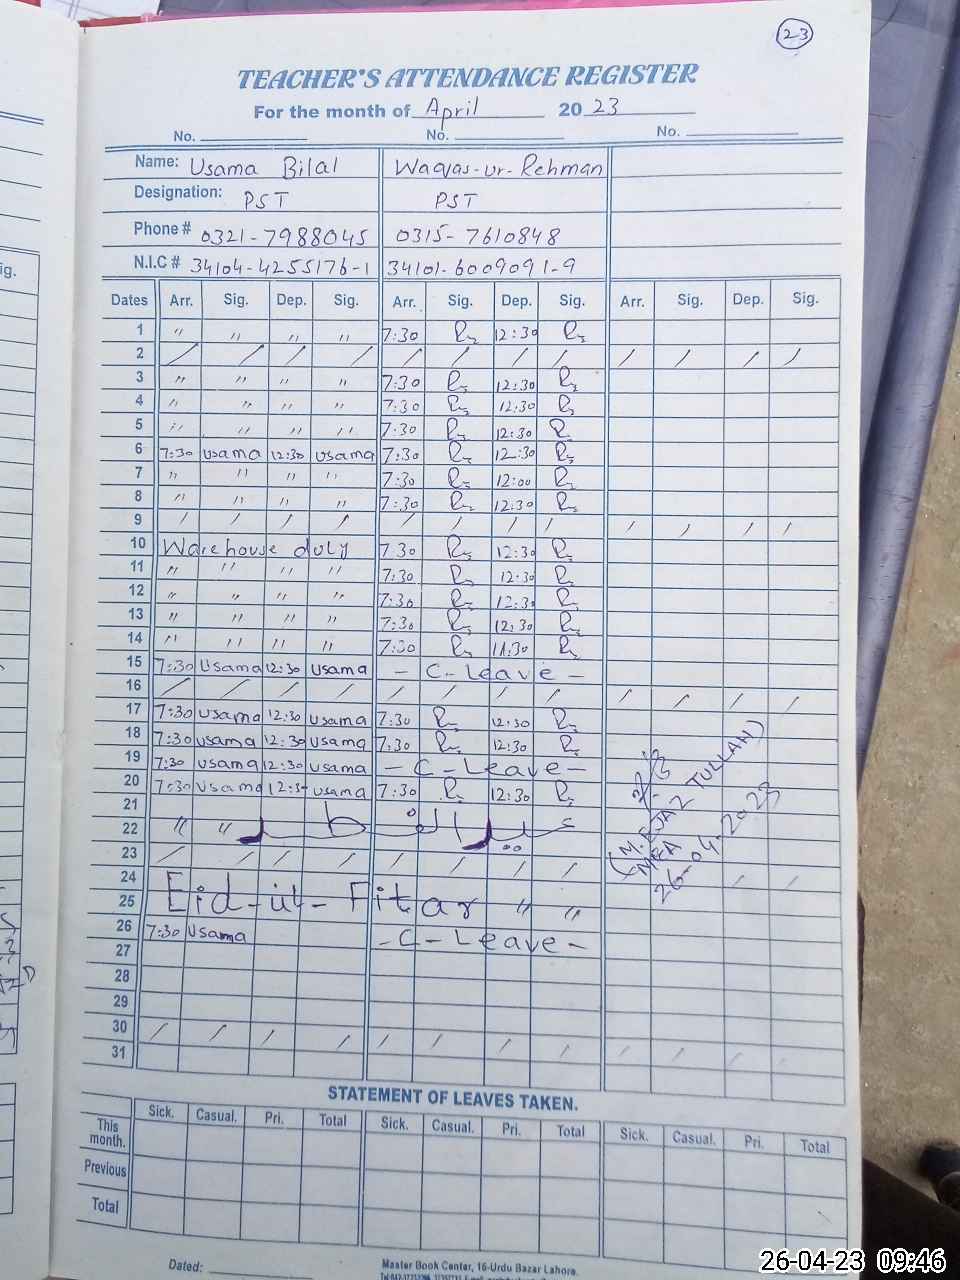 23
TEACHER'S ATTENDANCE REGISTER
For the month of April 2023
No. No. No.
Name: Usama Bilal Waqas-ur-Rehman
Designation: PST PST
Phone # 0321-7988045 0315-7610848
N.I.C # 34104-4255176-1 34101-6009091-9
Dates Arr. Sig. Dep. Sig. Arr. Sig. Dep. Sig. Arr. Sig. Dep. Sig.
1 " " " " 7:30 12:30
2 / / / / / / / / / / / /
3 " " " " 7:30 12:30
4 " " " " 7:30 12:30
5 " " " " 7:30 12:30
6 7:30 usama 12:30 usama 7:30 12:30
7 " " " " 7:30 12:00
8 " " " " 7:30 12:30
9 / / / / / / / / / / / /
10 Warehouse duty 7:30 12:30
11 " " " " 7:30 12:30
12 " " " " 7:30 12:30
13 " " " " 7:30 12:30
14 " " " " 7:30 11:30
15 7:30 Usama 12:30 usama - C - Leave -
16 / / / / / / / / / / / /
17 7:30 usama 12:30 usama 7:30 12:30
18 7:30 usama 12:30 usama 7:30 12:30
19 7:30 usama 12:30 usama - C - Leave -
20 7:30 usama 12:30 usama 7:30 12:30
21
22 " " عید الفطر
23 / / / / / / / /
24 / /
25 Eid-ul-Fitar " "
26 7:30 usama - C - Leave -
27
28
29
30 / / / / / / / / / / / /
31
(M. EJAZ TULLAN)
MEA
26-04-2023
STATEMENT OF LEAVES TAKEN.
Sick. Casual. Pri. Total Sick. Casual. Pri. Total Sick. Casual. Pri. Total
This month.
Previous
Total
Dated:
Master Book Center, 16-Urdu Bazar Lahore.
26-04-23 09:46